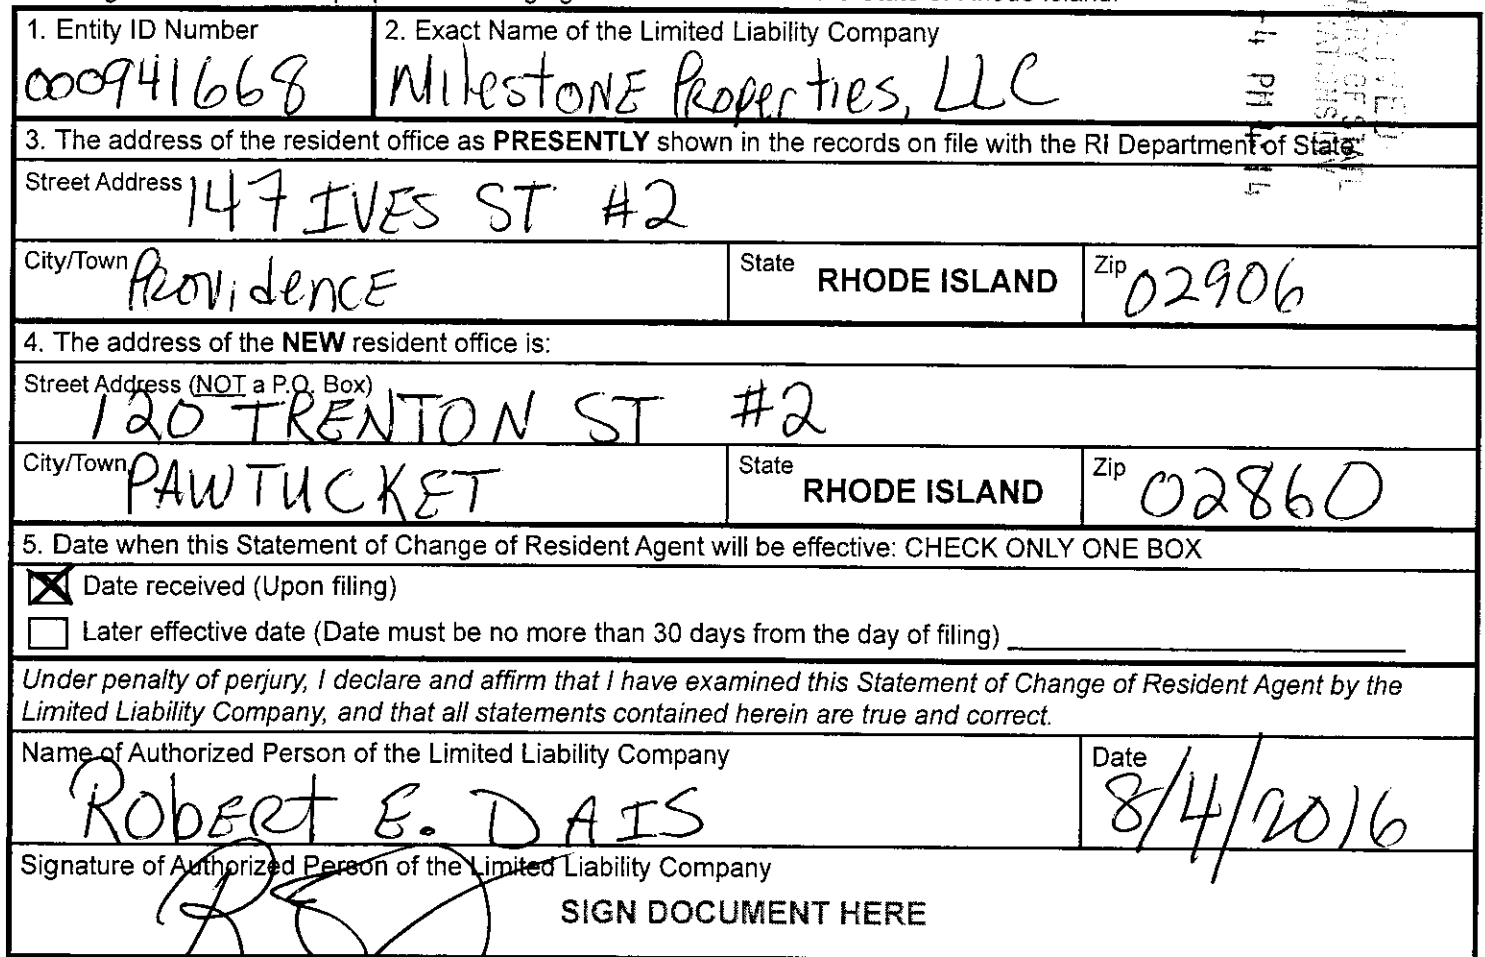 1. Entity ID Number
000941668
2. Exact Name of the Limited Liability Company
MilestONE Properties, LLC
3. The address of the resident office as PRESENTLY shown in the records on file with the RI Department of State:
Street Address
147 IVES ST #2
City/Town
Providence
State
RHODE ISLAND
Zip
02906
4. The address of the NEW resident office is:
Street Address (NOT a P.O. Box)
120 TRENTON ST #2
City/Town
PAWTUCKET
State
RHODE ISLAND
Zip
02860
5. Date when this Statement of Change of Resident Agent will be effective: CHECK ONLY ONE BOX
Date received (Upon filing)
Later effective date (Date must be no more than 30 days from the day of filing)
Under penalty of perjury, I declare and affirm that I have examined this Statement of Change of Resident Agent by the
Limited Liability Company, and that all statements contained herein are true and correct.
Name of Authorized Person of the Limited Liability Company
RObERt E. DAIS
Date
8/4/2016
Signature of Authorized Person of the Limited Liability Company
SIGN DOCUMENT HERE